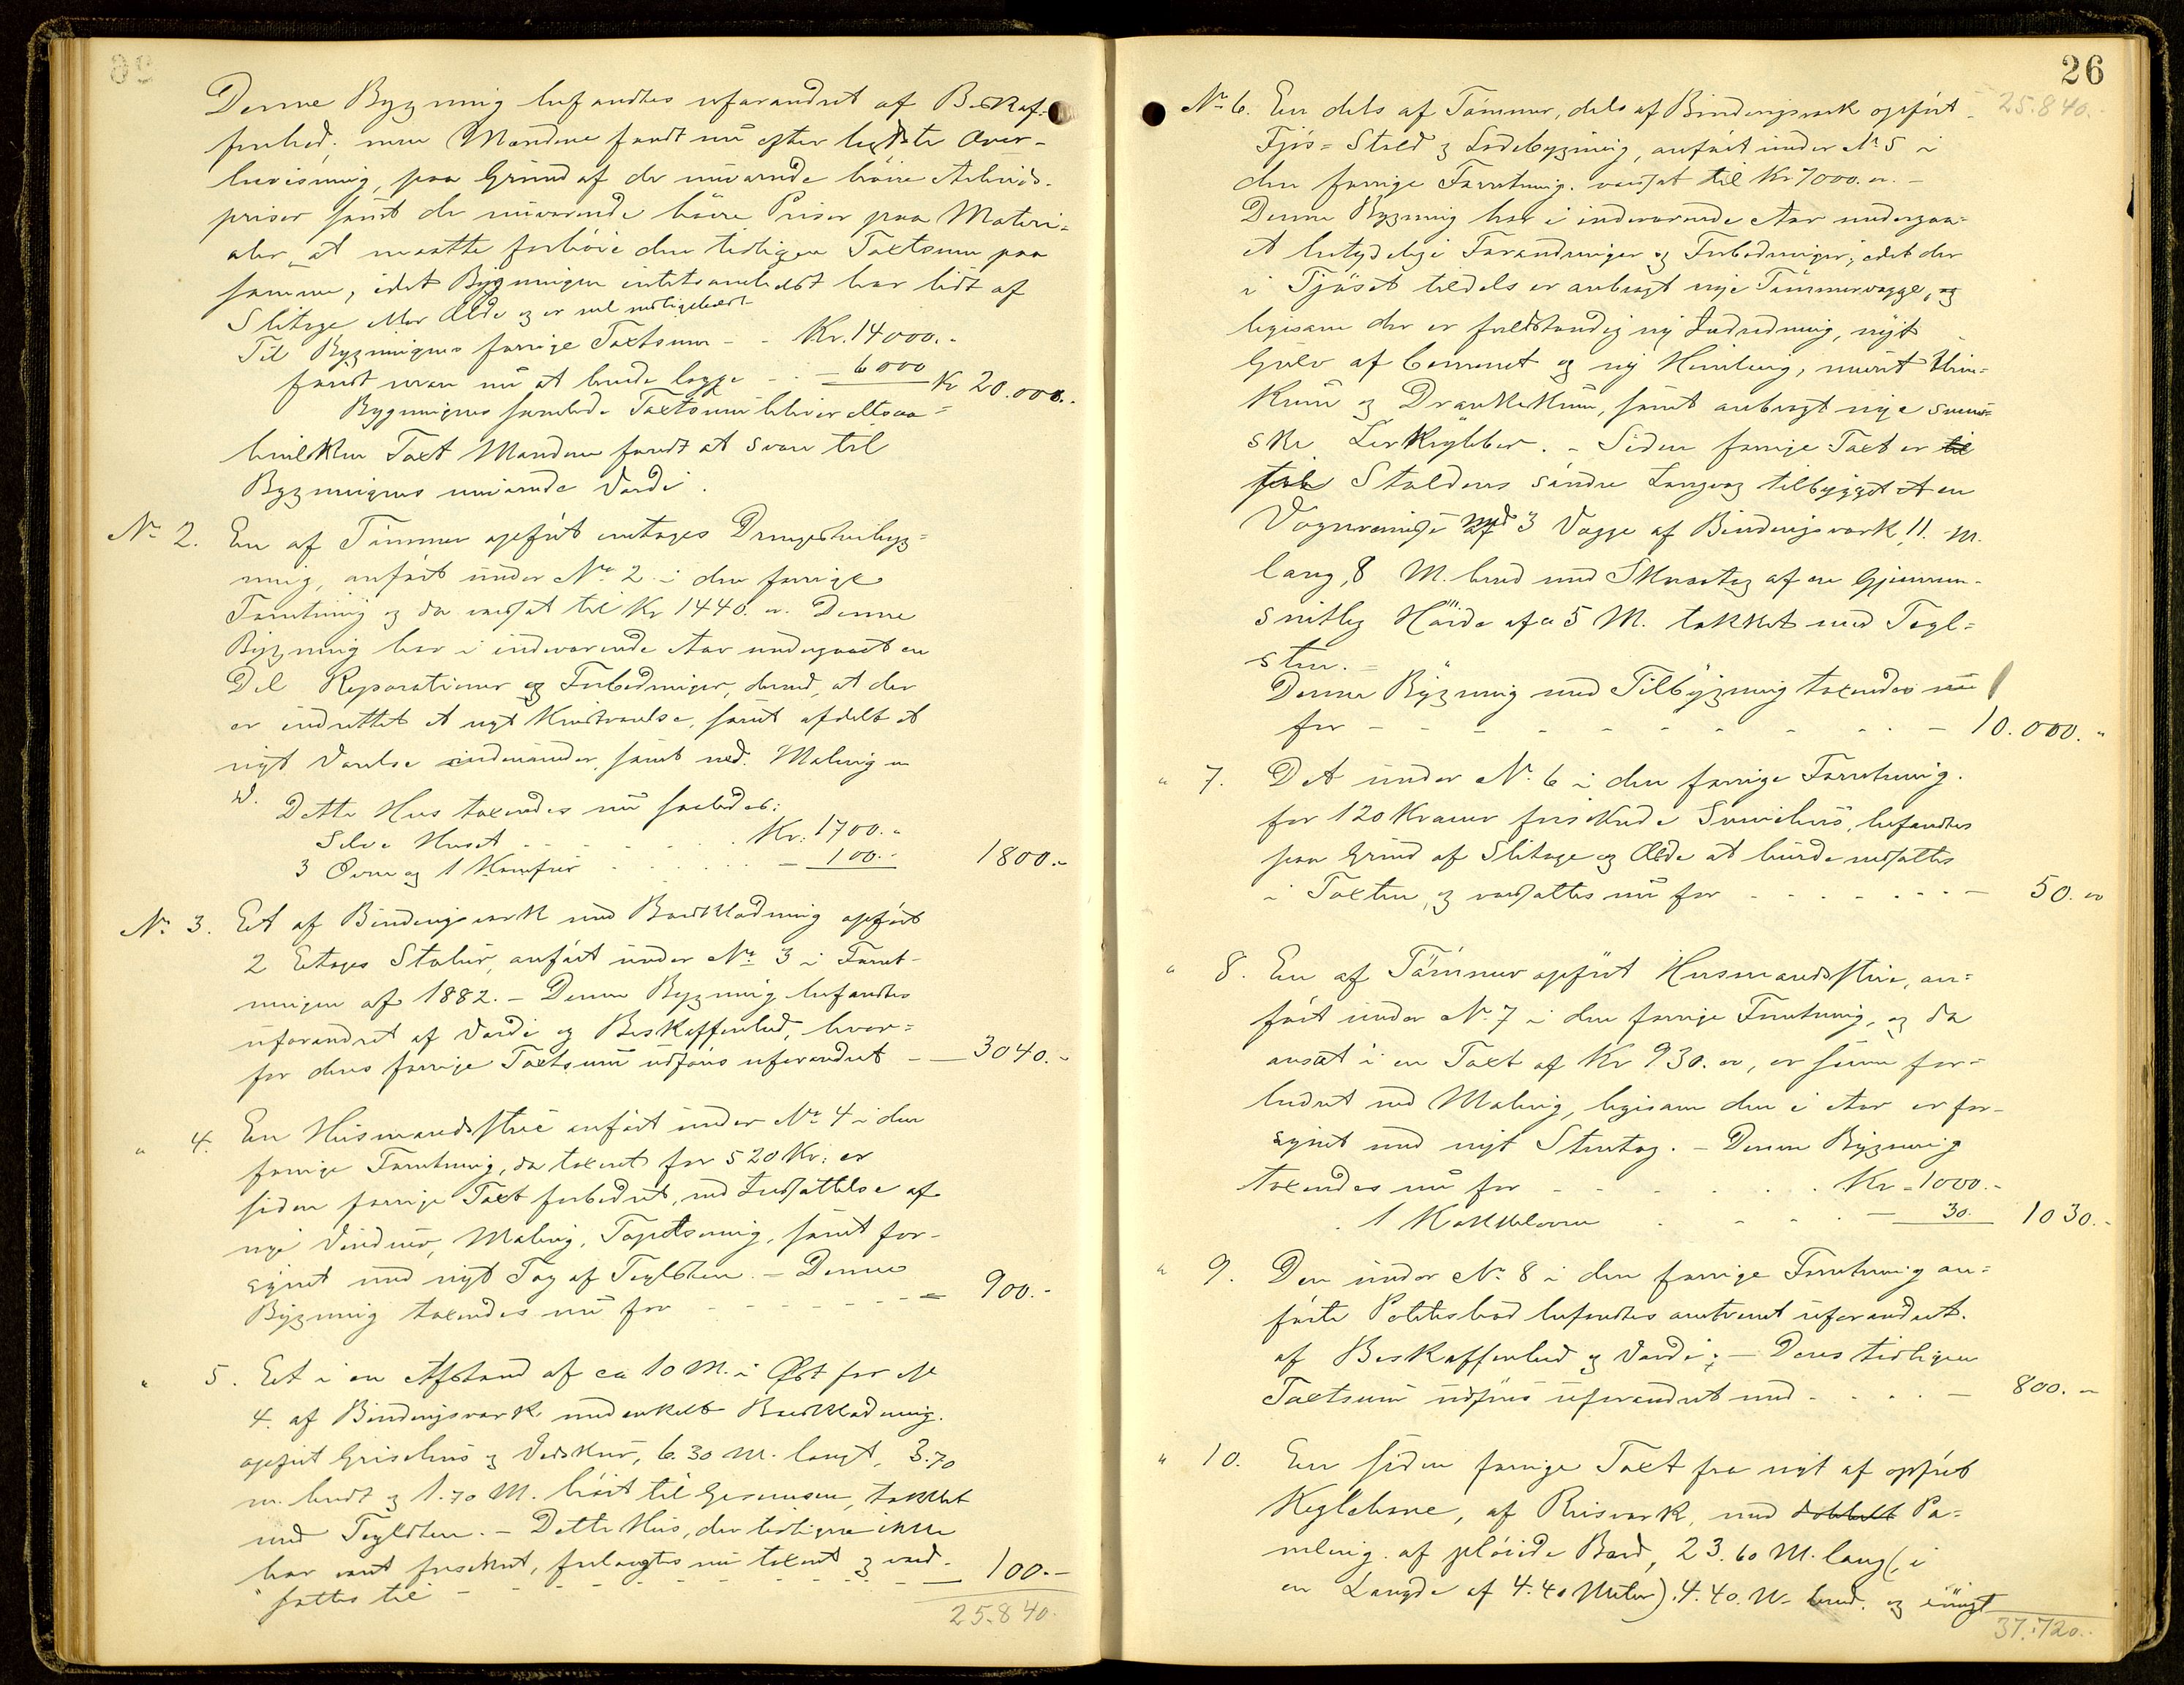 Denne Bygning befandtes uforandret af Beskaf-
fenhed; men Mændene fandt nu efter bedste Over-
bevisning, paa Grund af de nuværende höie Arbeids-
priser samt de nuværende höiere Priser paa Materi-
aler, at maatte forhöie den tidligere Taxtsum paa
samme, idet Bygningen intetsomhelst har lidt af
Slitage eller Ælde og er vel vedligeholdt
Til Bygningens forrige Taxtsum - - Kr. 14000.-
fandt man nu at burde lægge - - - 6000
Kr 20.000.-
Bygningens samlede Taxtsum bliver altsaa -
hvilken Taxt Mændene fandt at svare til
Bygningens nuværende Værdi.
No 2. En af Tömmer opfört enetages Drengestubyg-
ning, anfört under No 2 i den forrige
Forretning og da værdsat til Kr 1440. er. Denne
Bygning har i indeværende Aar undergaaet en
Del Reparationer og Forbedringer, derved, at der
er indrettet et nyt Kvistværelse, samt afdelt et
nyt Værelse indenunder, samt ved Maling m
V.
Dette Hus taxeredes nu saaledes:
Selve Huset - - - - - Kr. 1700.-
3 Ovne og 1 Komfur - - - - 100.- 1800.-
No 3. Et af Bindingsværk med Bordklædning opfört
2 Etages Stabur, anfört under No 3 i Forret-
ningen af 1882. - Denne Bygning befandtes
uforandret af Værdi og Beskaffenhed, hvor-
for dens forrige Taxtsum udföres uforandret - - 3040.-
" 4. En Husmandsstue anfört under No 4 i den
forrige Forretning, da taxeret for 520 Kr. er
siden forrige Taxt forbedret, ved Indsættelse af
nye Vinduer, Maling, Tapetsering, samt for-
synet med nyt Tag af Teglsten. - Denne
Bygning taxeredes nu for - - - - - 900.-
" 5. Et i en Afstand af ca 10 M. i Öst for No
4. af Bindingsværk med enkelt Bordklædning.
opfört Grisehus og Vedskur, 6.30 M. langt, 3.70
m. bredt og 1.70 M. höit til Gesimsen, tækket
med Teglsten. - Dette Hus, der tidligere ikke
har været forsikret, forlangtes nu taxert og værd-
sattes til - - - - - - - 100.-
25.840.
26
No 6. En dels af Tömmer, dels af Bindingsværk opfört - 25.840.
Fjös- Stald & Ladebygning, anfört under No 5 i
den forrige Forretning. værdsat til Kr 7000. er. -
Denne Bygning har i indeværende Aar undergaa-
et betydelige Forandringer og Forbedringer, idet der
i Fjöset tildels er anbragt nye Tömmervægge, og
ligesom der er fuldstændig ny Indredning, nyt
Gulv af Cement og ny Himling, muret
og Drankekum, samt anbragt nye svens-
ske Lerkrybber. - Siden forrige Taxt er til
Staldens söndre Langvæg tilbygget et en
med 3 Vægge af Bindingsværk, 11. M.
lang, 8 M. bred med Skraatag af en Gjennem-
snitlig Höide af ca 5 M. tækket med Tegl-
sten. -
Denne Bygning med Tilbygning taxeredes nu
for - - - - - - - - - 10.000.-
" 7. Det under No 6 i den forrige Forretning.
for 120 Kroner forsikrede Svinehus, befandtes
paa Grund af Slitage og Ælde at burde nedsættes
i Taxten, og værdsattes nu for - - - - - 50. er
" 8. En af Tömmer opfört Husmandsstue, an-
fört under No 7 i den forrige Forretning, og da
ansat i en Taxt af Kr 930. er, er siden for-
bedret ved Maling, ligesom den i Aar er for-
synet med nyt Stentag. - Denne Bygning
taxeredes nu for - - - - Kr. 1000.-
1 Kakkelovn - - - - - 30. 1030.-
" 9. Den under No 8 i den forrige Forretning an-
förte Potetesbod befandtes omtrent uforandret.
af Beskaffenhed og Værdi; - Dens tidligere
Taxtsum udföres uforandret med - - - - 800.-
" 10. En siden forrige Taxt fra nyt af opfört
Keglebane, af Reisværk, med dobbelt Pa-
neling. af plöiede Bord, 23.60 M. lang (i
en Længde af 4.40 Meter). 4.40. M. bred. og
37.720.-